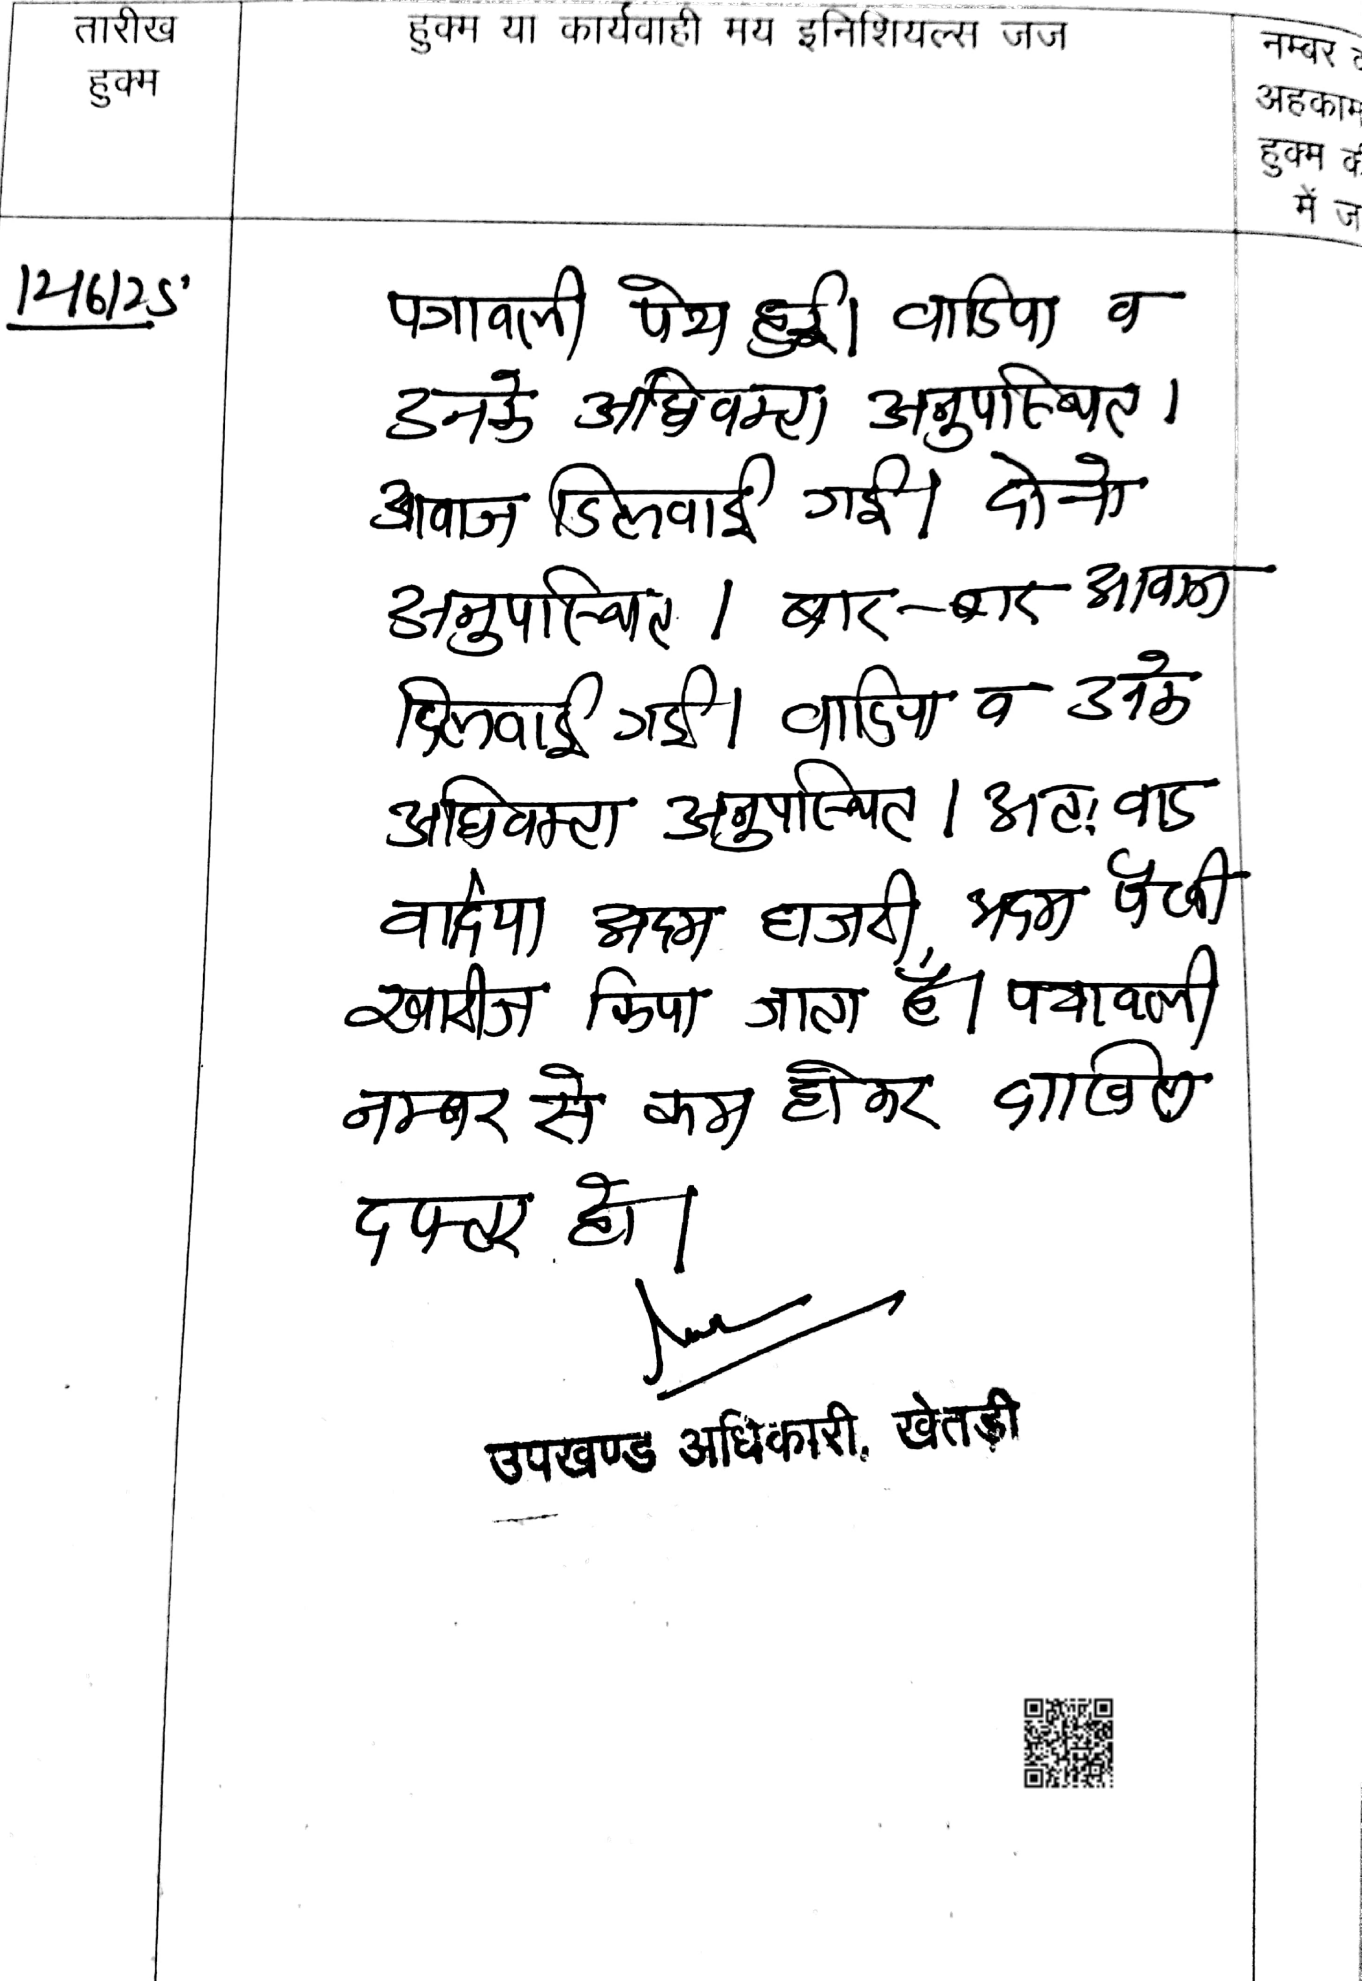 तारीख
हुक्म
हुक्म या कार्यवाही मय इनिशियल्स जज
नम्बर
अहकाम
हुक्म की
में ज
पत्रावली पेश हुई। वादिया व
उनके अधिवक्ता अनुपस्थित।
आवाज दिलवाई गई। दोनो
अनुपस्थित। बार-बार आवाज
दिलवाई गई। वादिया व उनके
अधिवक्ता अनुपस्थित। अतः वाद
वादिया अदम हाजरी, अदम पैरवी
खारीज किया जाता है। पत्रावली
नम्बर से कम होकर दाखिल
दफ्तर हो।
उपखण्ड अधिकारी, खेतड़ी